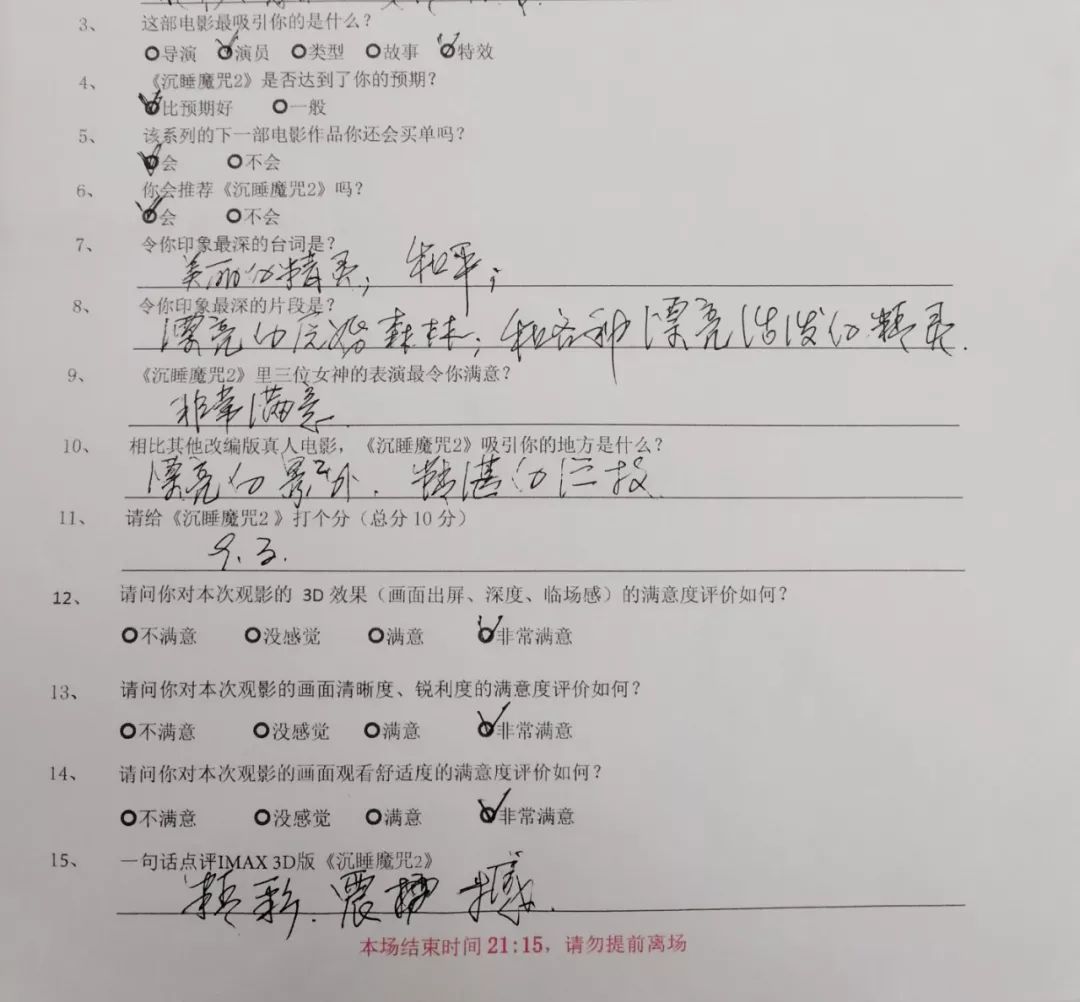 3、 这部电影最吸引你的是什么？
导演 演员 类型 故事 特效
4、 《沉睡魔咒2》是否达到了你的预期？
比预期好 一般
5、 该系列的下一部电影作品你还会买单吗？
会 不会
6、 你会推荐《沉睡魔咒2》吗？
会 不会
7、 令你印象最深的台词是？
美丽的精灵；和平；
8、 令你印象最深的片段是？
漂亮的 森林；和各种漂亮活泼的精灵.
9、 《沉睡魔咒2》里三位女神的表演最令你满意？
非常满意.
10、 相比其他改编版真人电影，《沉睡魔咒2》吸引你的地方是什么？
漂亮的 精湛的演技.
11、 请给《沉睡魔咒2 》打个分（总分 10 分）
9.3.
12、 请问你对本次观影的 3D 效果（画面出屏、深度、临场感）的满意度评价如何？
不满意 没感觉 满意 非常满意
13、 请问你对本次观影的画面清晰度、锐利度的满意度评价如何？
不满意 没感觉 满意 非常满意
14、 请问你对本次观影的画面观看舒适度的满意度评价如何？
不满意 没感觉 满意 非常满意
15、 一句话点评IMAX 3D版《沉睡魔咒2》
精彩.震撼.
本场结束时间 21:15，请勿提前离场